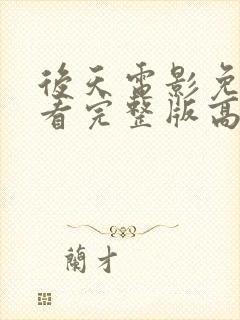 後天電影免
看完整版高
蘭才